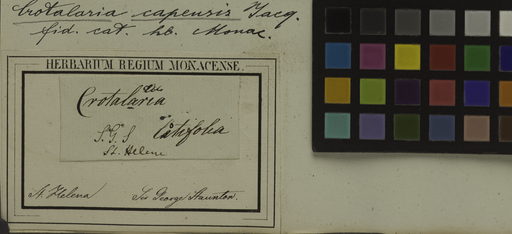 Crotalaria capensis Jacq.
fid. cat. hb. Monac.
HERBARIUM REGIUM MONACENSE.
Crotalaria
latifolia
S.G.S
St. Helene
St. Helena
Sir George Staunton.